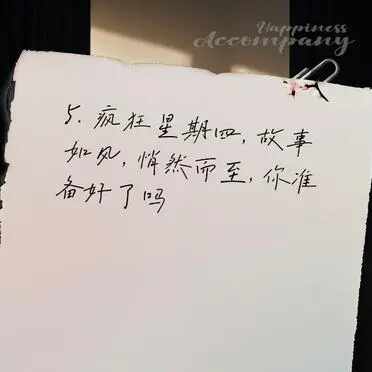 Happiness
Accompany
5. 疯狂星期四，故事
如风，悄然而至，你准
备好了吗